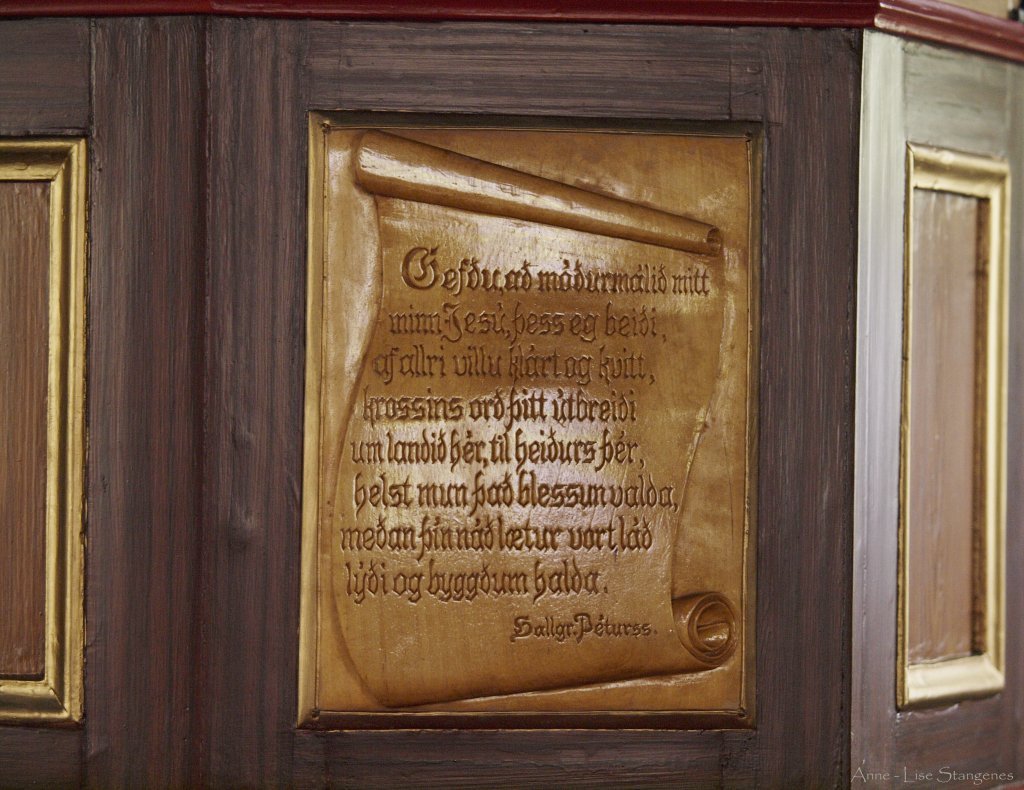 Gefðu, að móðurmálið mitt
minn Jesú, þess eg beiði,
af allri villu klárt og kvitt,
krossins orð þitt útbreiði
um landið hér, til heiðurs þér,
helst mun það blessun valda,
meðan þín náð lætur vort láð
lýði og byggðum halda.
Hallgr. Péturss.
Anne - Lise Stangenes